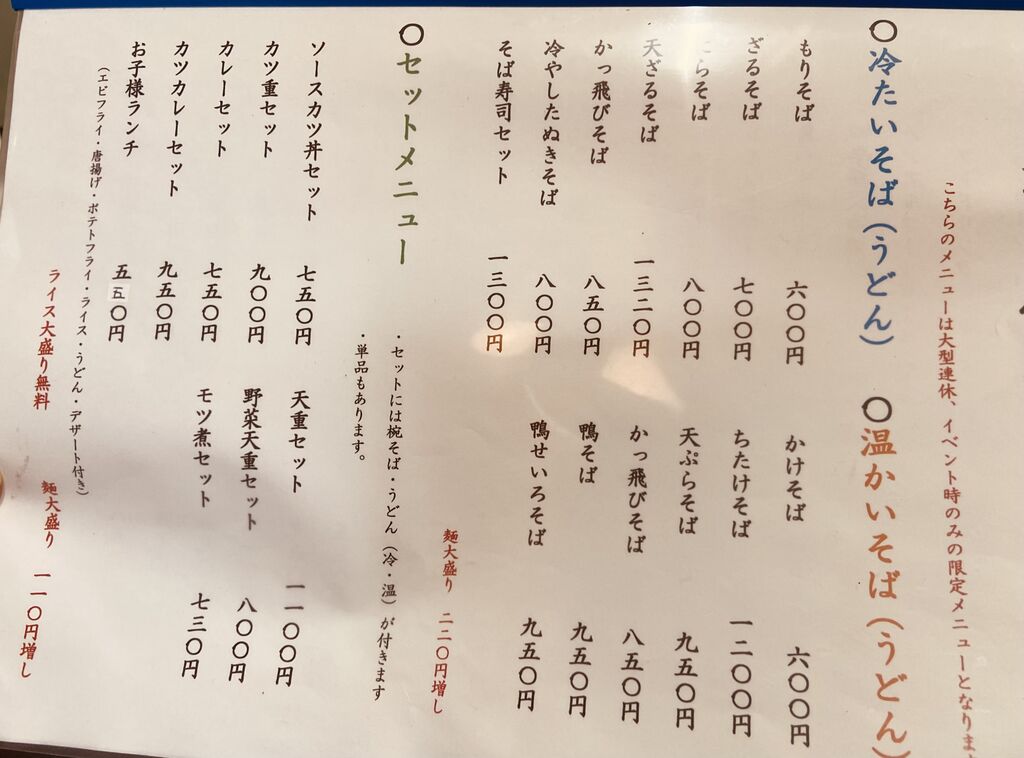 こちらのメニューは大型連休、イベント時のみの限定メニューとなりま
〇冷たいそば(うどん)
もりそば 六〇〇円
ざるそば 七〇〇円
らそば 八〇〇円
天ざるそば 一三二〇円
かっ飛びそば 八五〇円
冷やしたぬきそば 八〇〇円
そば寿司セット 一三〇〇円
〇温かいそば(うどん)
かけそば 六〇〇円
ちたけそば 一二〇〇円
天ぷらそば 九五〇円
かっ飛びそば 八五〇円
鴨そば 九五〇円
鴨せいろそば 九五〇円
麺大盛り 二二〇円増し
〇セットメニュー
・セットには椀そば・うどん(冷・温)が付きます
・単品もあります。
ソースカツ丼セット 七五〇円
カツ重セット 九〇〇円
カレーセット 七五〇円
カツカレーセット 九五〇円
お子様ランチ 五五〇円
(エビフライ・唐揚げ・ポテトフライ・ライス・うどん・デザート付き)
天重セット 一一〇〇円
野菜天重セット 八〇〇円
モツ煮セット 七三〇円
ライス大盛り無料 麺大盛り 一一〇円増し